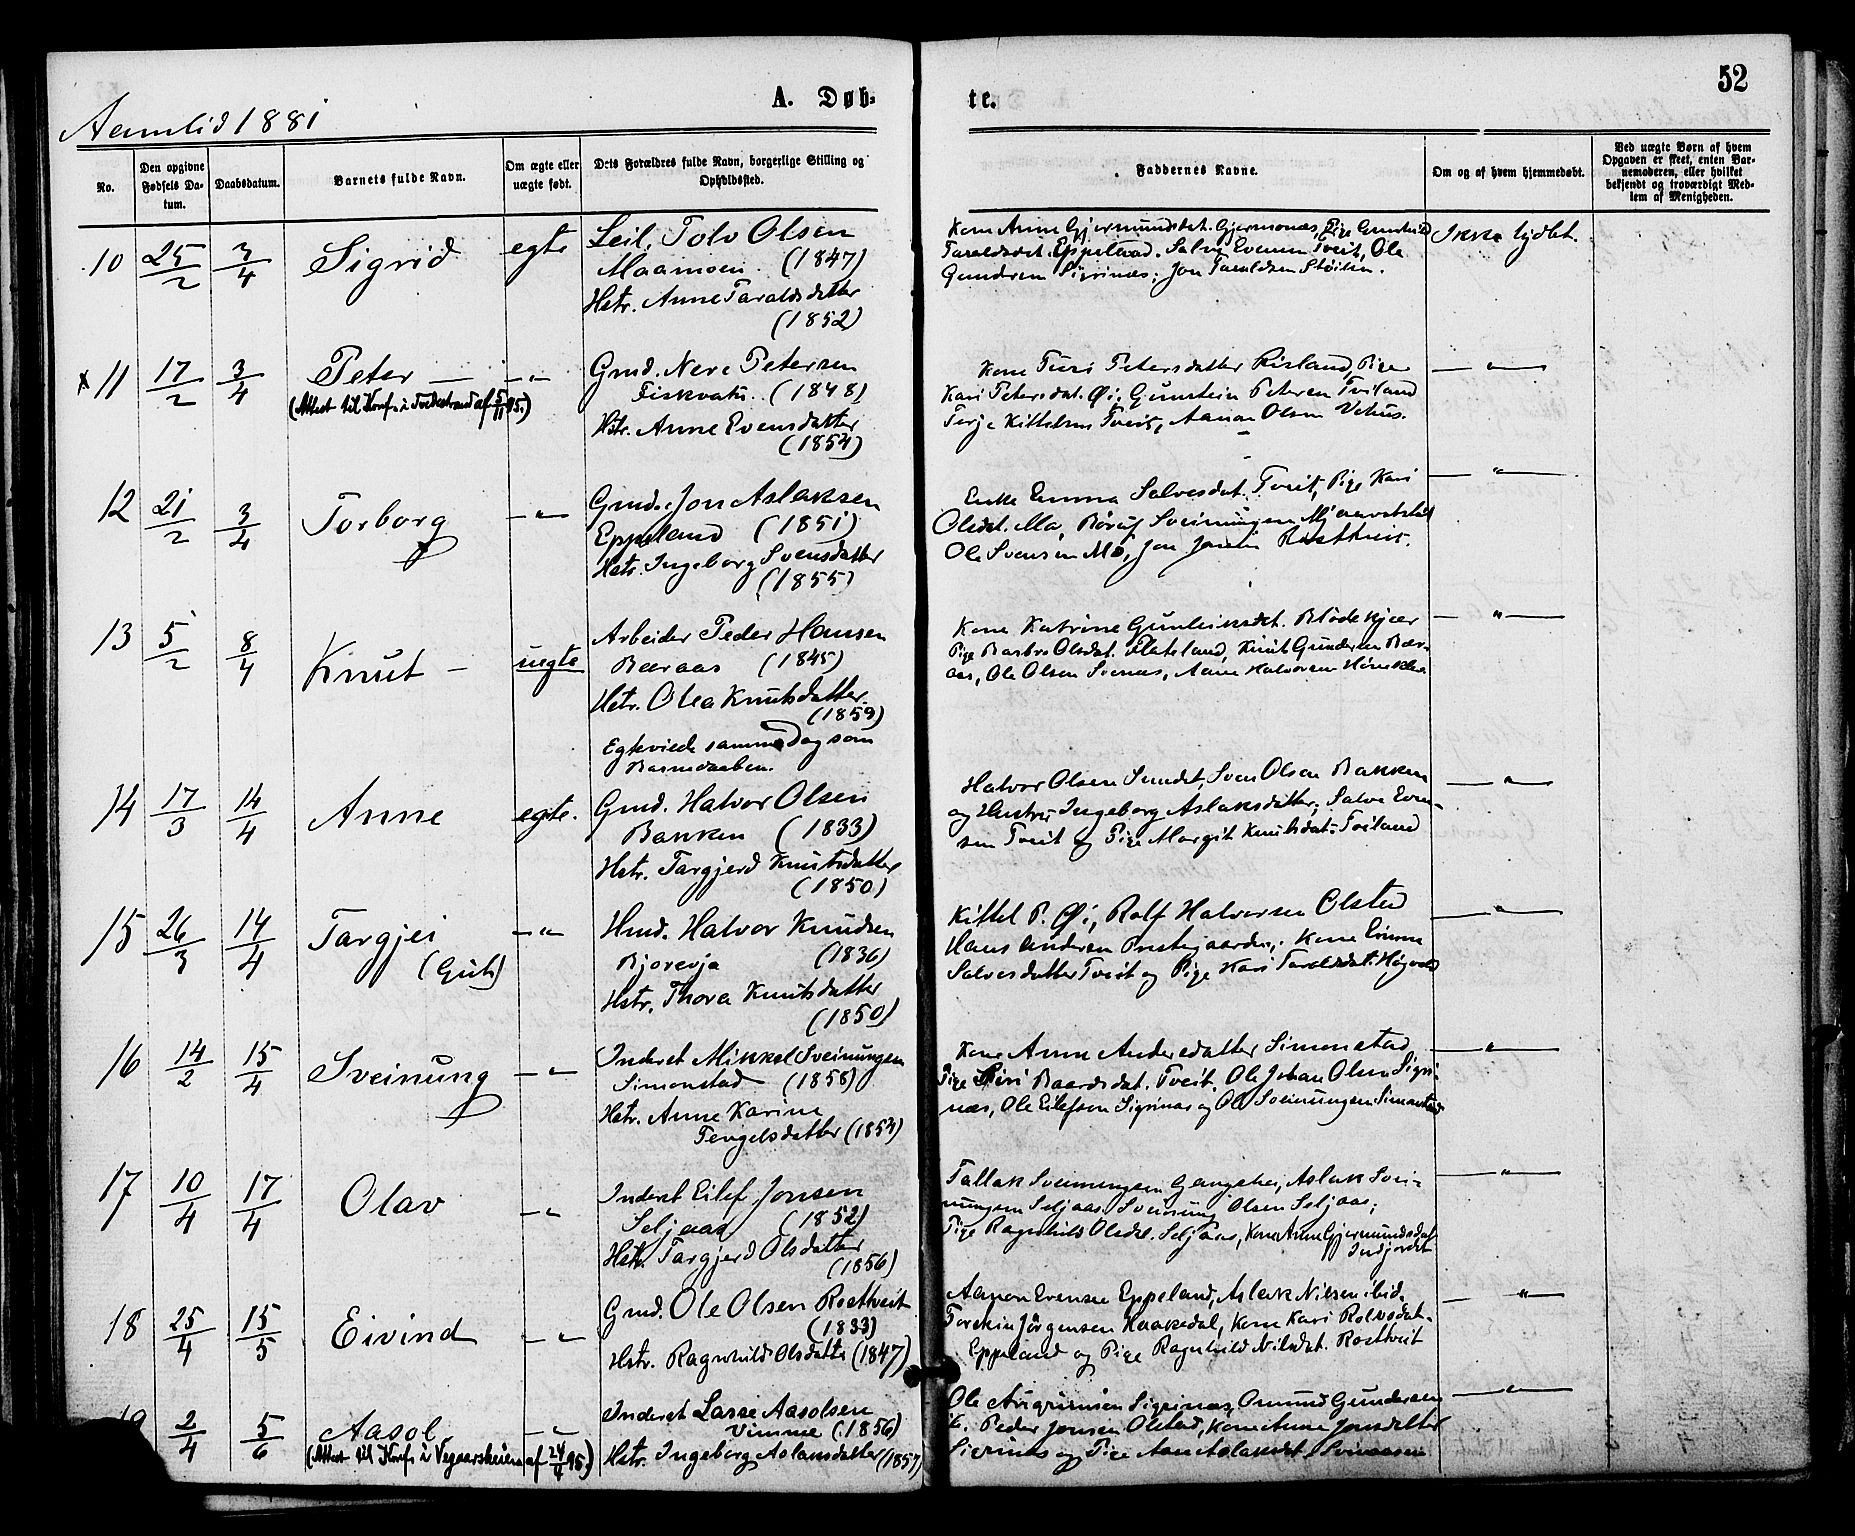 52
Aamlid 1881
A. Døb-
te.
No.
Den opgivne Fødsels Da-tum.
Daabsdatum.
Barnets fulde Navn.
Om ægte eller uægte født.
Dets Forældres fulde Navn, borgerlige Stilling og Opholdssted.
Faddernes Navne.
Om og af hvem hjemmedøbt.
Ved uægte Børn af hvem Opgaven er skeet, enten Bar-nemoderen, eller hvilket bekjendt og troværdigt Med-lem af Menigheden.
10 25/2 3/4 Sigrid egte
Leil. Tolv Olsen
Maamoen. (1847)
Hstr. Anne Taraldsdatter
(1852)
Kone Anne Gjermundsdat. Gjermonæs, Pige Gunhild
Taraldsdat. Eppeland. Salve Evensen Tveit, Ole
Gundersen Sigrinæs; Jon Taraldsen Støilen.
Ikke hjdbt.
x 11 17/2 3/4 Peter — — " —
(Attest til Konf. i Tvedestrand af 5/11 95.)
Gmd. Nere Petersen
Fiskvatn. (1848)
Hstr. Anne Evensdatter
(1854)
Kone Turi Petersdatter Risland, Pige
Kari Petersdat. Øi, Gunstein Petersen Tveiland
Terje Kittelsen Tveit, Aanon Olsen Vehus.
— " —
12 21/2 3/4 Torborg — " —
Gmd. Jon Aslaksen
Eppeland (1851)
Hstr. Ingeborg Svensdatter
(1855)
Enke Emma Salvesdat. Tveit, Pige Kari
Olsdat. Mo, Sveinungsen
Ole Svensen Mo, Jon Jonsen Rostkveit.
— " —
13 5/2 8/4 Knut — uegte
Arbeider Peder Hansen
Beraas (1845)
Hstr. Olea Knutsdatter.
(1859)
Egteviede samme Dag som
Barnedaaben.
Kone Katrine Gunleiksdat. Blödekjær
Pige Barbro Olsdat. Flateland, Knut Gundersen Bær-
aas, Ole Olsen, Halvorsen
— " —
14 17/3 14/4 Anne egte.
Gmd. Halvor Olsen
Bakken (1833)
Hstr. Targjerd Knutsdatter
(1850)
Halvor Olsen Sundet, Sven Olsen Bakken
og Hustru Ingeborg Aslaksdatter; Salve Even-
sen Tveit og Pige Margit Knutsdat. Tveiland
— " —
15 26/3 14/4 Targjei — " —
(Gut)
Hmd. Halvor Knudsen
Bjorevja (1836)
Hstr. Thora Knutsdatter
(1850)
Kittel P. Øi, Rolf Halvorsen Olsted
Hans Andersen Prestegaarden; Kone Emma
Salvesdatter Tveit og Pige Kari Taraldsdat.
— " —
16 14/2 15/4 Sveinung — " —
Inderst Mikkel Sveinungsen
Simonstad (1858)
Hstr. Anne Karine
Tengelsdatter (1854)
Kone Anne Andersdatter Simonstad
Pige Siri Baardsdat. Tveit. Ole Johan Olsen Sigri-
næs, Ole Eilefsen Sigrinæs og Ole Sveinungsen Simonstad
— " —
17 10/4 17/4 Olav — " —
Inderst Eilef Jonsen
Seljaas (1852)
Hstr. Targjerd Olsdatter
(1856)
Tallak Sveinungsen Gangshei, Aslak Svei-
nungsen Seljaas, Sveinung Olsen Seljaas;
Pige Ragnhild Olsdat. Seljaas, Kone Anne Gjermundsdat.
— " —
18 25/4 15/5 Eivind — " —
Gmd. Ole Olsen Rostkveit
(1833)
Hstr. Ragnhild Olsdatter (1847)
Aanon Evensen Eppeland, Aslak Nilsen ibid.
Jörgensen Haakedal, Kone Kari Rolvsdat.
Eppeland og Pige Ragnhild Nilsdat. Rostkveit
— " —
19 2/4 5/6 Aasol. — " —
(Attest til Konf. i Vegaarsheien af 24/4 95.)
Inderst Lasse Aasolsen
Vimme (1856)
Hstr. Ingeborg Aslaksdatter (1857)
Ole Sigrinæs, Omund Gundersen
Peder Jonsen Olstad, Kone Anne Jonsdatter
Sigrinæs og Pige Aase Aslaksdat.
— " —